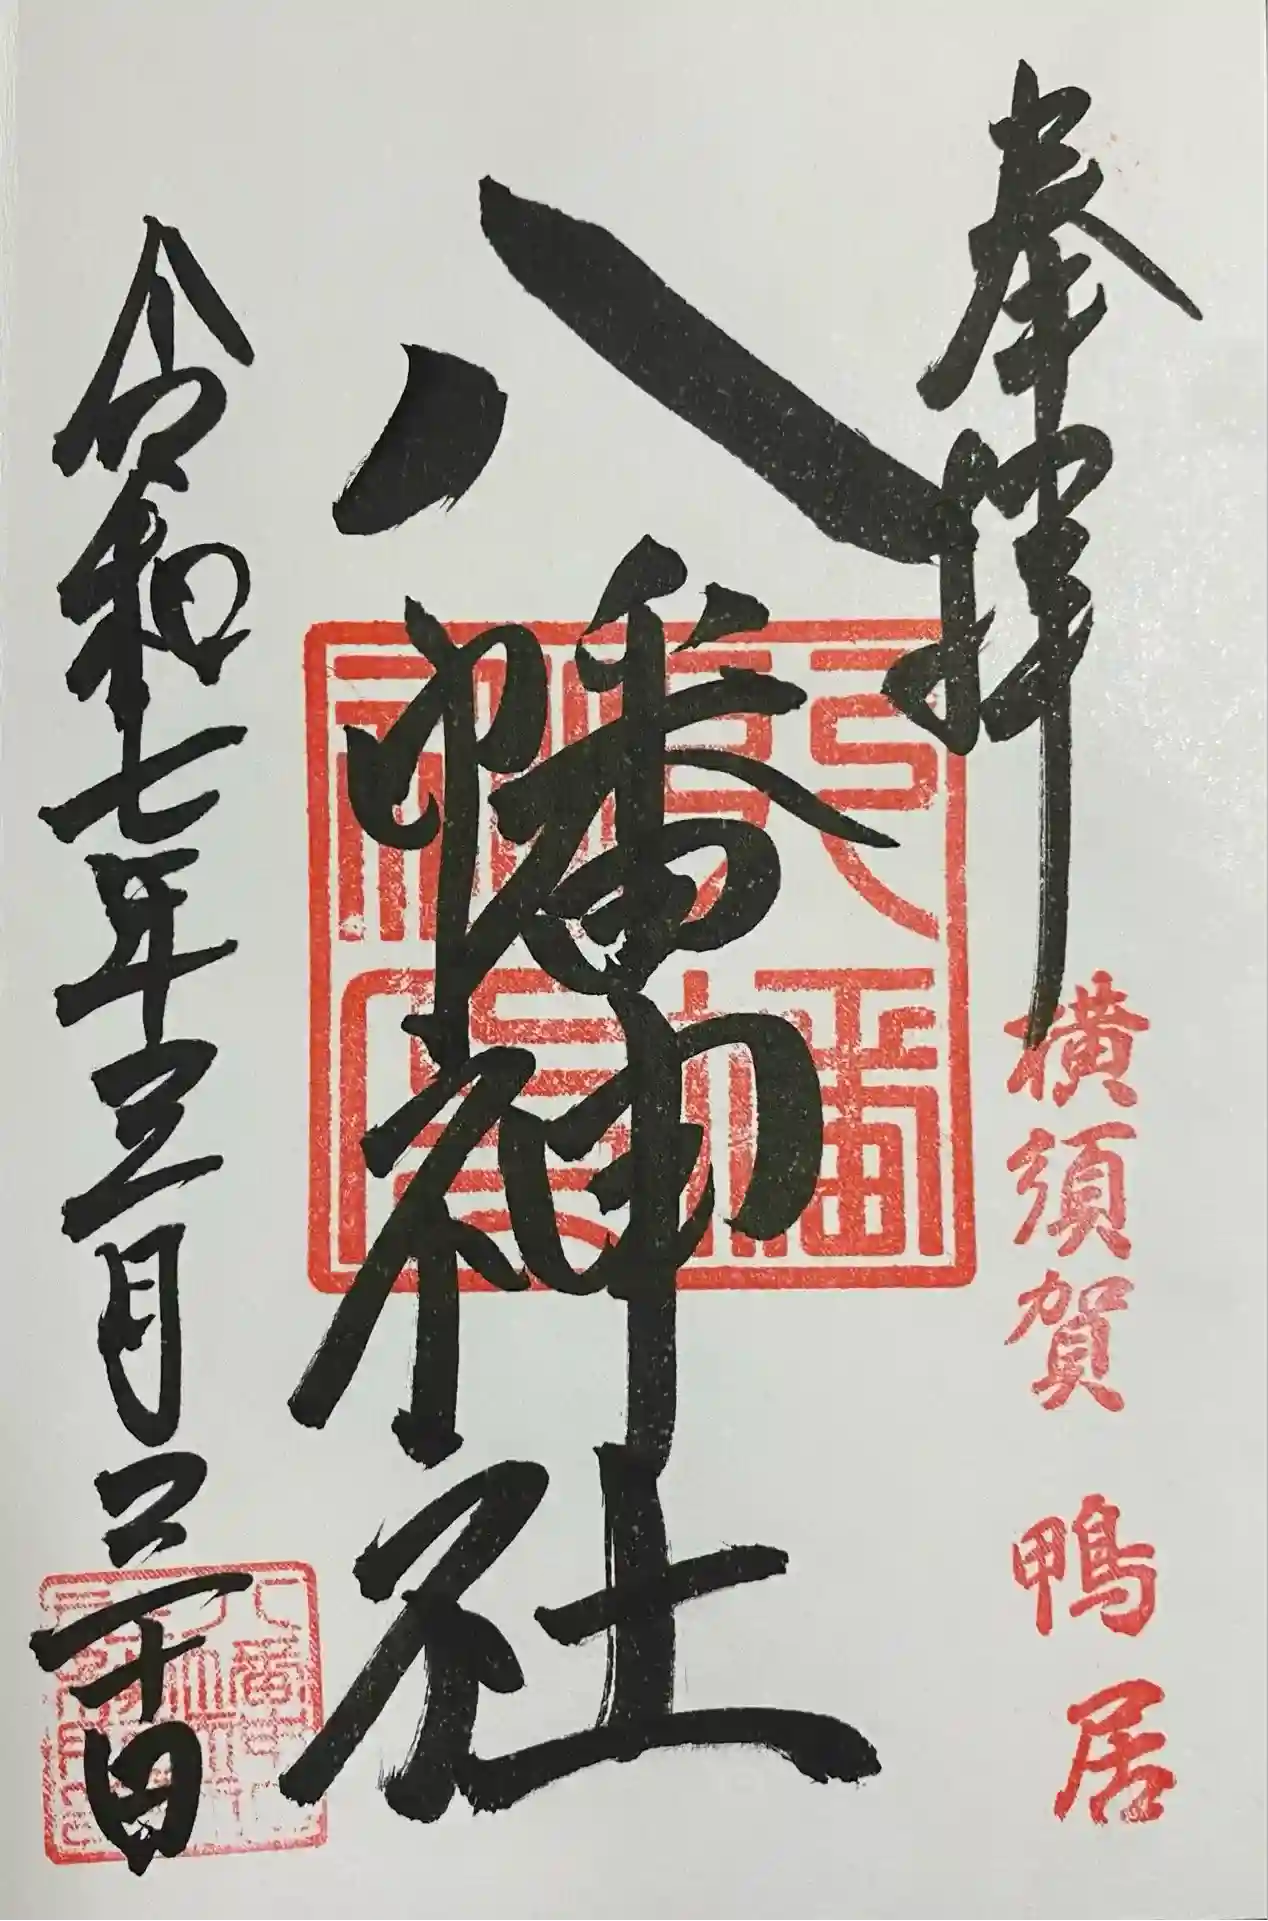 奉拝
横須賀 鴨居
八幡神社
令和七年三月三十日